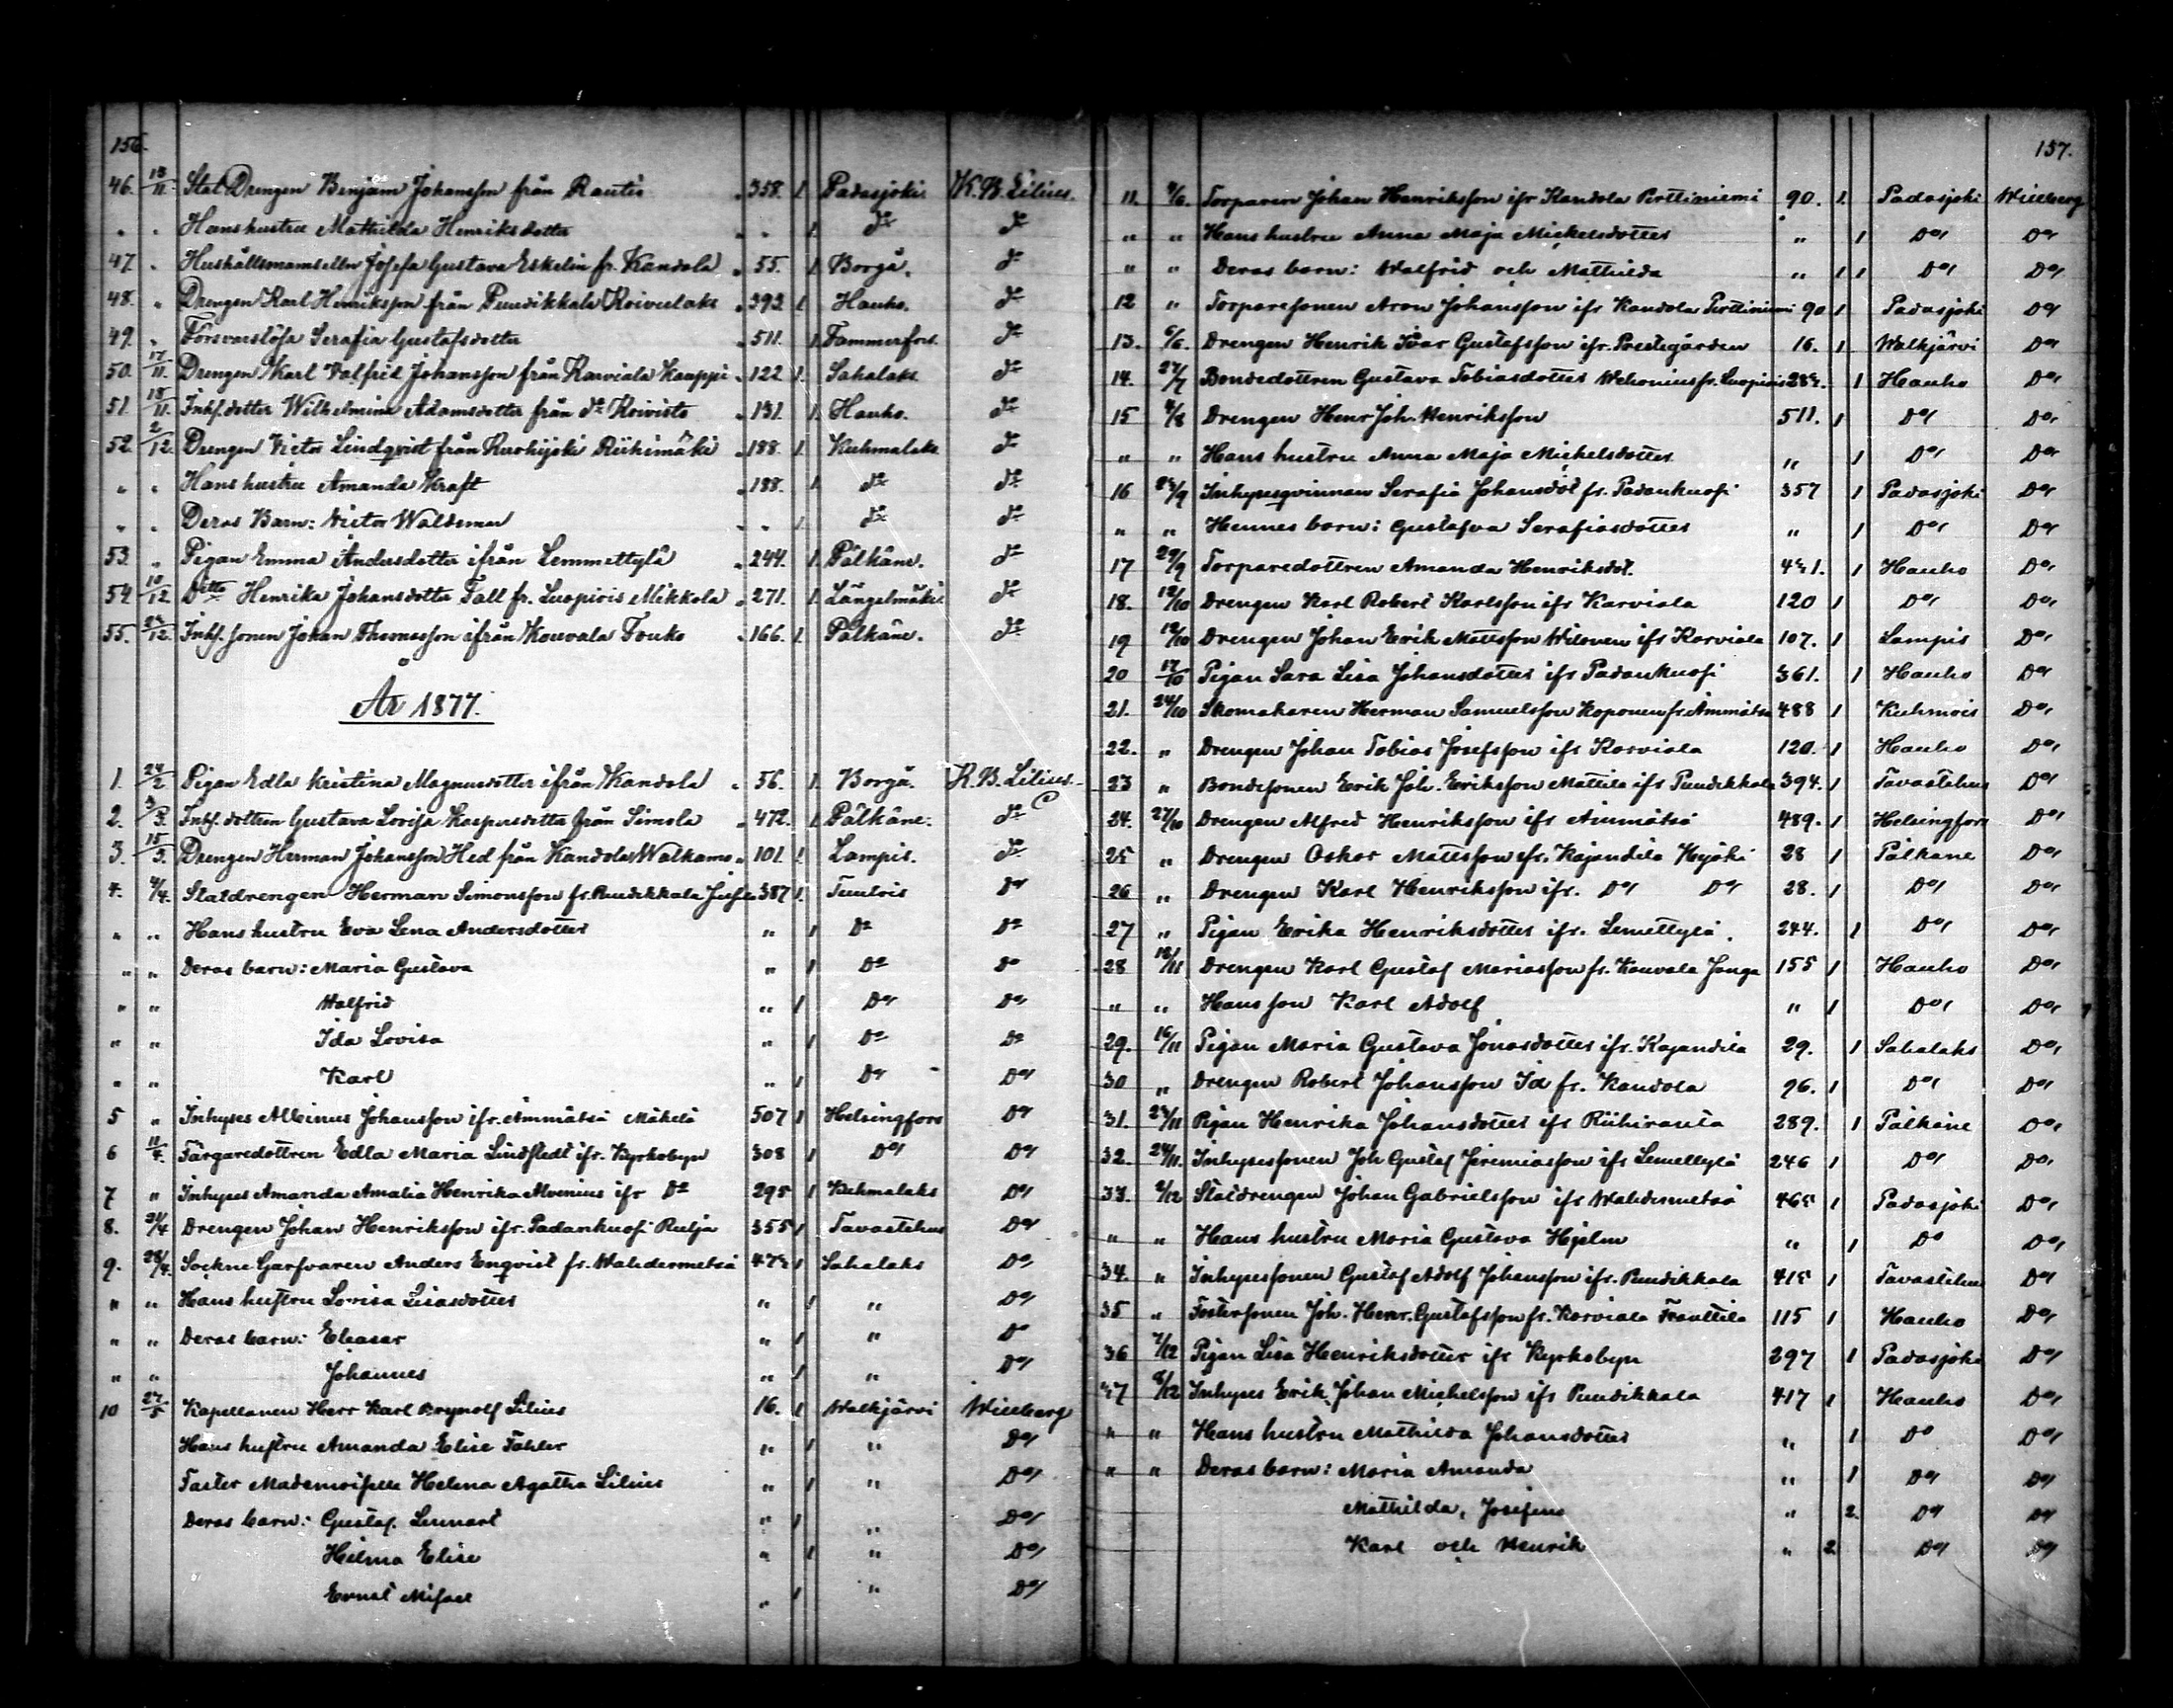 156.
46. 13/11. Stat Drengen Benjam Johansson från Rautis 358. 1. Padasjoki K. B. Lilius.
" " Hans hustru Mathilda Henriksdotter " 1. do do
47. " Hushållsmamsellen Josefa Gustava Eskelin fr. Kandola 55. 1. Borgå. do
48. " Drengen Karl Henriksson från Pundikkala Koivulaks 393 1. Hauho. do
49. " Försvarslösa Serafia Gustafsdotter 511. 1. Tammerfors. do
50. 17/11. Drengen Karl Valfrid Johansson från Karviala Kauppi 122 1. Sahalaks do
51. 18/11. Inhs. dotter Wilhelmina Adamsdotter från do Koivisto 131. 1. Hauho. do
52. 2/12. Drengen Victor Lindqvist från Kurhijoki Riihimäki 188. 1. Kuhmalaks do
" " Hans hustru Amanda Kraft 188. 1. do do
" " Deras Barn: Victor Waldemar " 1. do do
53. " Pigan Emma Andersdotter ifrån Lemmettylä 244. 1. Pälkäne. do
54. 10/12. Ditto Henrika Johansdotter Tall fr. Luopiois Mikkola 271. 1. Längelmäki do
55. 24/12. Inhs. sonen Johan Thomasson ifrån Kouvala Touko 166. 1. Pälkäne. do
År 1877.
1. 24/2 Pigan Edla Kristina Magnusdotter ifrån Kandola 56. 1. Borgå. K. B. Lilius
2. 3/3. Inhs. dottren Gustava Lovisa Kaspersdotter från Simola 472. 1. Pälkäne. do
3. 15/3. Drengen Herman Johansson Hed från Kandola Walkamo 101. 1. Lampis. do
4. 4/4. Statdrengen Herman Simonsson fr. Pundikkala Jussila 387 1. Tuulois Do
" " Hans hustru Eva Lena Andersdotter " 1 Do Do
" " Deras barn: Maria Gustava " 1 Do Do
" " Walfrid " 1 Do Do
" " Ida Lovisa " 1 Do Do
" " Karl " 1 Do Do
5 " Inhyses Albinus Johansson ifr. Ämmätsä Mäkelä 507 1 Helsingfors Do
6 11/4. Färgaredottren Edla Maria Lindstedt ifr. Kyrkobyn 308 1 Do Do
7 " Inhyses Amanda Amalia Henrika Alvenius ifr Do 295 1 Kuhmalaks Do
8. 21/4 Drengen Johan Henriksson ifr. Padankuosi Rulja 355 1 Tavastehus Do
9. 28/4. Sockne Garfvaren Anders Enqvist fr. Wahdermetsä 472 1 Sahalaks Do
" " Hans hustru Lovisa Lisasdotter " 1 " Do
" " Deras barn: Eleasar " 1 " Do
" " Johannes " 1 " Do
10 27/5 Kapellanen Herr Karl Brynolf Lilius 16. 1 Walkjärvi Willberg
Hans hustru Amanda Elise Fahler " 1 " Do
Faster Mademoiselle Helena Agatha Lilius " 1 " Do
Deras barn: Gustaf Lennart " 1 " Do
Hilma Elise " 1 " Do
Ernst Misael " 1 " Do
157.
11. 9/6. Torparen Johan Henriksson ifr Kandola Perttiniemi 90. 1. Padasjoki Willberg
" " Hans hustru Anna Maja Mickelsdotter " 1 Do Do
" " Deras barn: Walfrid och Mathilda " 1 1 Do Do
12 " Torparesonen Aron Johansson ifr Kandola Perttiniemi 90 1 Padasjoki Do
13. 6/6. Drengen Henrik Ivar Gustafsson ifr. Prestegården 16. 1 Walkjärvi Do
14. 27/7 Bondedottren Gustava Tobiasdotter Wehonius fr. Luopiois 282. 1 Hauho Do
15 4/8 Drengen Henr Joh. Henriksson 511. 1 Do Do
" " Hans hustru Anna Maja Michelsdotter " 1 Do Do
16 23/9 Inhysesqvinnan Serafia Johansdot fr. Padankuosi 357 1 Padasjoki Do
" " Hennes barn: Gustafva Serafiasdotter " 1 Do Do
17 29/9 Torparedottren Amanda Henriksdot. 421. 1 Hauho Do
18. 12/10 Drengen Karl Robert Karlsson ifr Karviala 120 1 Do Do
19 12/10 Drengen Johan Erik Mattsson Wilonen ifr Karviala 107. 1 Lampis Do
20 17/10 Pigan Sara Lisa Johansdotter ifr Padankuosi 361. 1 Hauho Do
21. 24/10 Skomakaren Herman Samuelsson Koponen fr. Ämmätsä 488 1 Kuhmois Do
22. " Drengen Johan Tobias Josefsson ifr Karviala 120. 1 Hauho Do
23 " Bondesonen Erik Joh. Eriksson Mattila ifr Pundikkala 394. 1 Tavastehus Do
24. 27/10 Drengen Alfred Henriksson ifr Ämmätsä 489. 1 Helsingfors Do
25 " Drengen Oskar Mattsson ifr. Kajandila Kyöki 28 1 Pälkäne Do
26 " Drengen Karl Henriksson ifr. Do Do 28. 1 Do Do
27 " Pigan Erika Henriksdotter ifr. Lemettylä. 244. 1 Do Do
28 18/11 Drengen Karl Gustaf Mariasson fr. Kouvala Janga 155 1 Hauho Do
" " Hans son Karl Adolf " 1 Do Do
29. 16/11 Pigan Maria Gustava Jonasdotter ifr. Kajandila 29. 1 Sahalaks Do
30 " Drengen Robert Johansson Id fr. Kandola 96. 1 Do Do
31. 23/11 Pigan Henrika Johansdotter ifr Riihiranta 289. 1 Pälkäne Do
32. 24/11. Inhysessonen Joh Gustaf Jeremiasson ifr Lemettylä 246 1 Do Do
33. 2/12 Statdrengen Johan Gabrielsson ifr Wahdermetsä 465 1 Padasjoki Do
" " Hans hustru Maria Gustava Hjelm " 1 Do Do
34. " Inhysessonen Gustaf Adolf Johansson ifr. Pundikkala 415 1 Tavastehus Do
35 " Fostersonen Joh. Henr. Gustafsson fr. Karviala Franttila 115 1 Hauho Do
36 7/12 Pigan Lisa Henriksdotter ifr Kyrkobyn 297 1 Padasjoki Do
37 8/12 Inhyses Erik Johan Michelsson ifr Pundikkala 417 1 Hauho Do
" " Hans hustru Mathilda Johansdotter " 1 Do Do
" " Deras barn: Maria Amanda " 1 Do Do
Mathilda, Josefina " 2. Do Do
Karl och Henrik " 2 Do Do